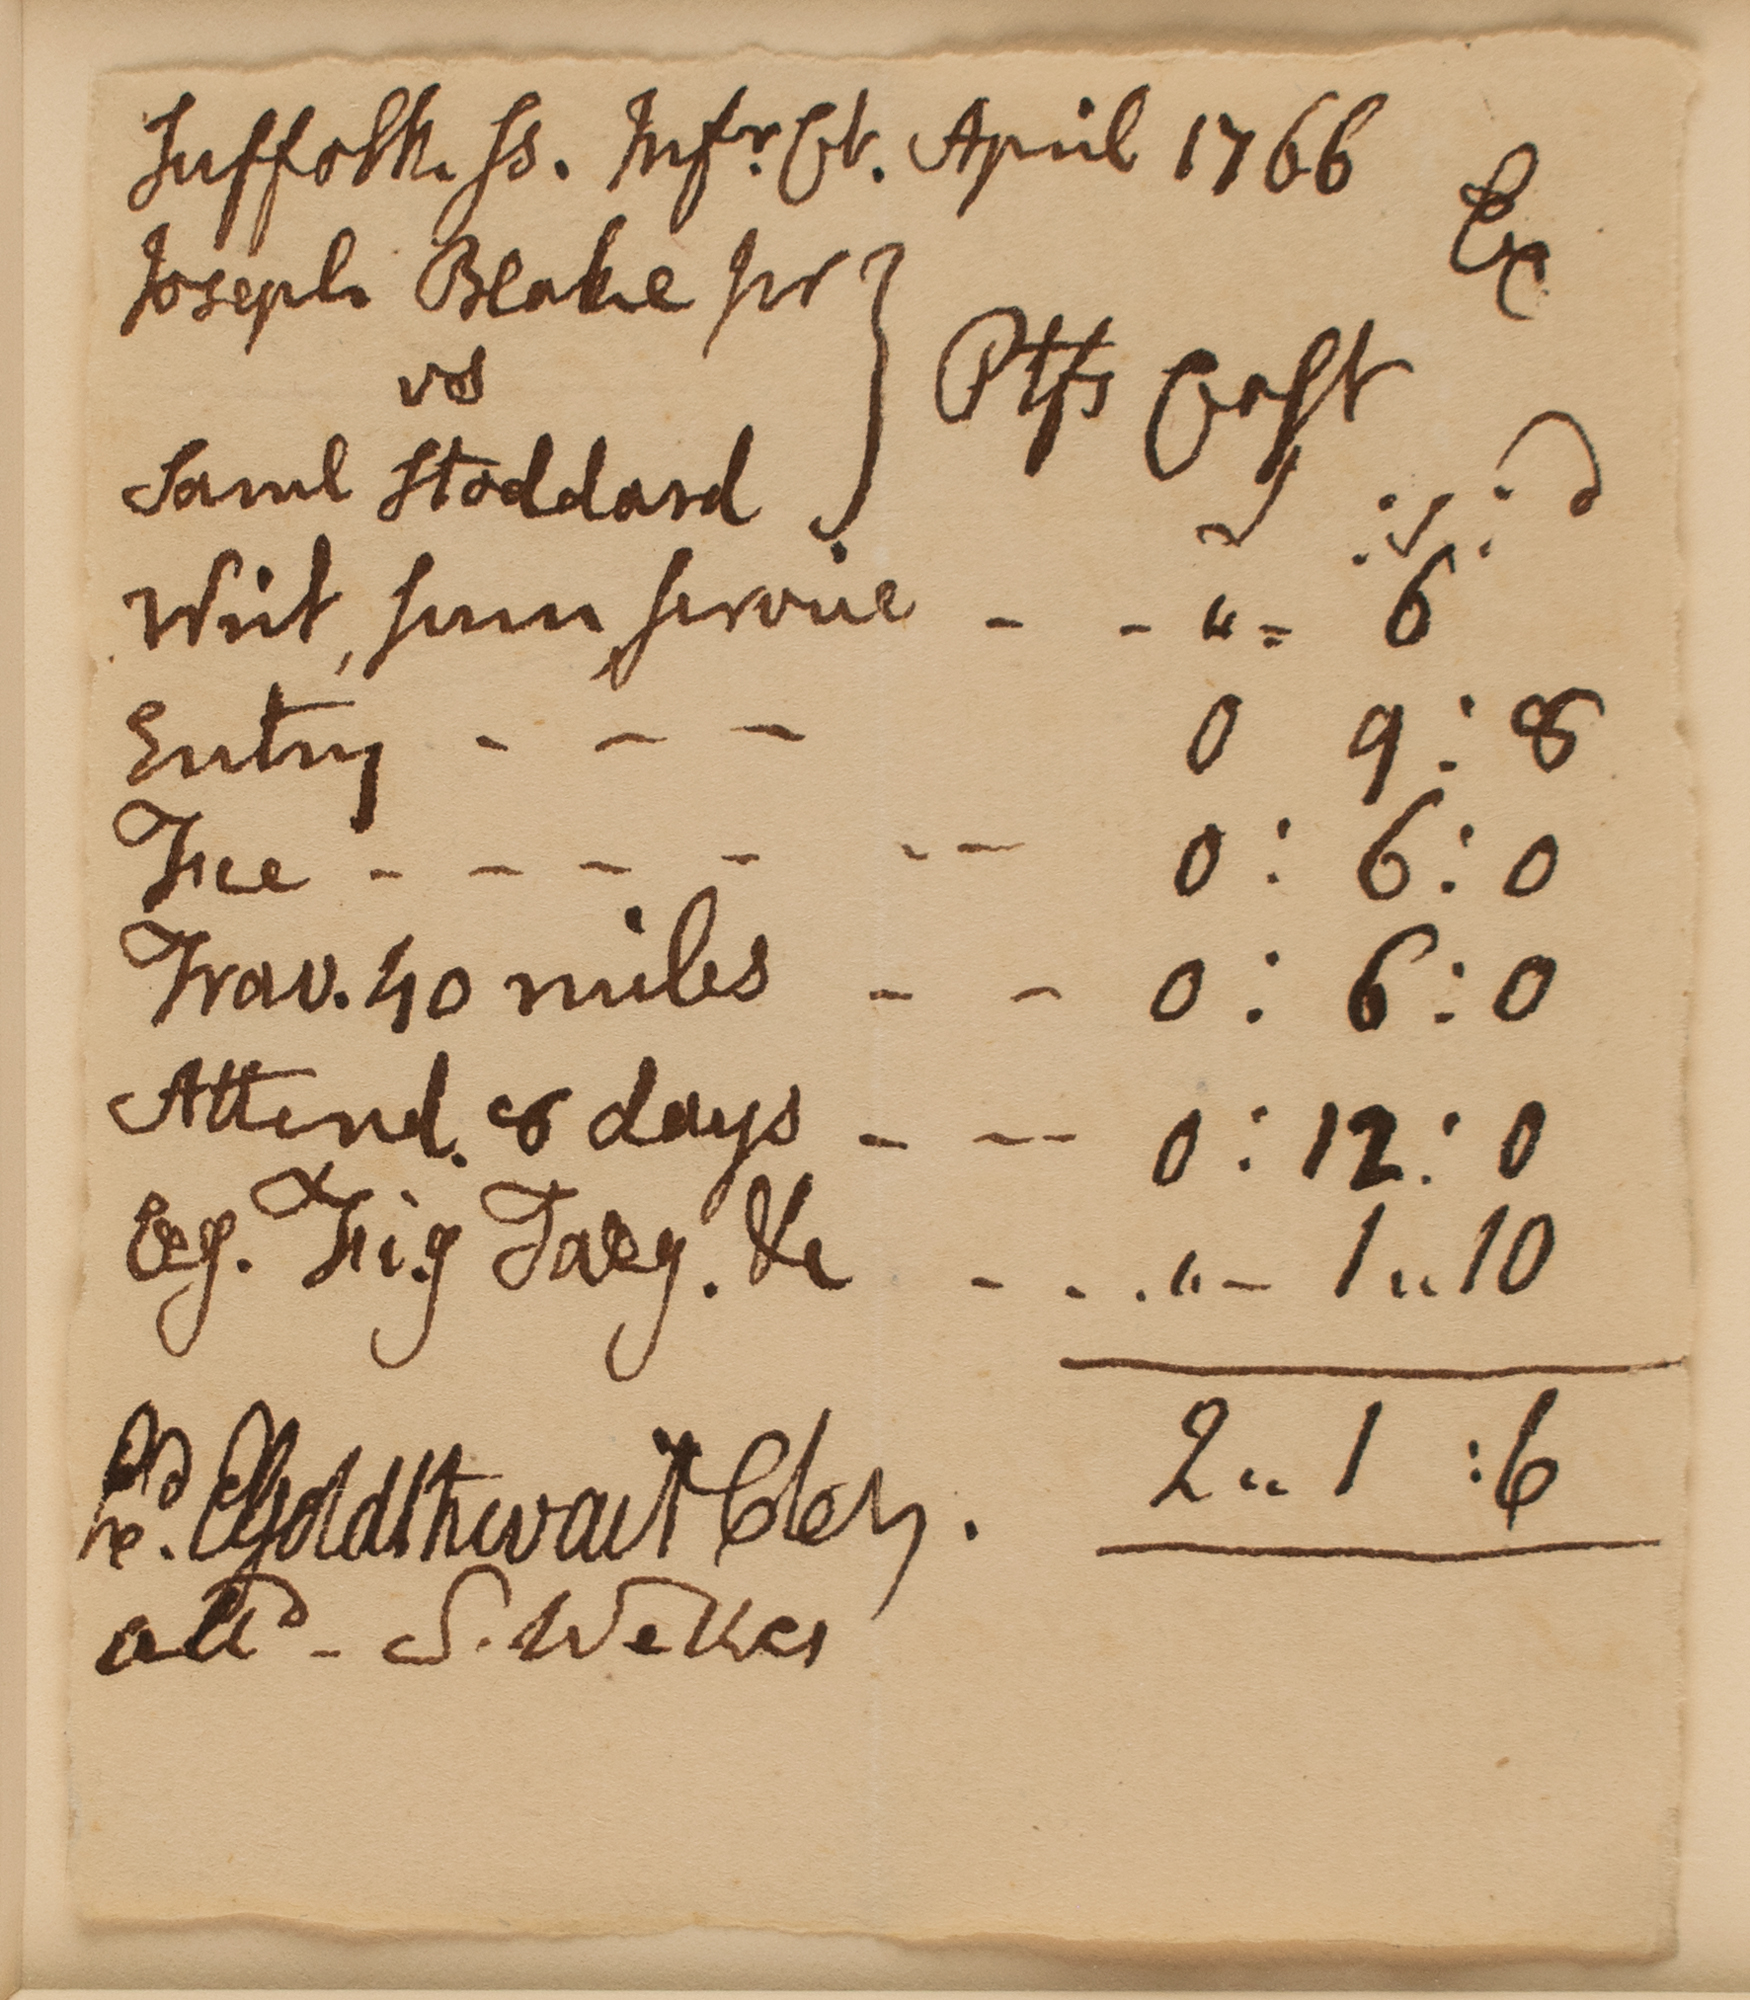 Suffolk. ss. Infr. Ct. April 1766
Ex
Joseph Blake jnr
vs
Saml Stoddard
Ptfs Cost
Writ, sum service - - " = 6
Entry - - - 0 9 : 8
Fee - - - - - - 0 : 6 : 0
Trav. 40 miles - - 0 : 6 : 0
Attend. 8 days - - - 0 : 12 : 0
Fig Taxg. &c - - . " - 1 " 10
2 " 1 : 6
Goldthwait Cler.
attd - S. Welles